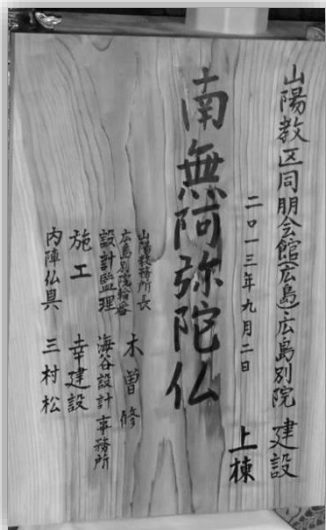 山陽教区同朋会館(広島)・広島別院 建設
二〇一三年九月二日 上棟
南無阿弥陀仏
山陽教務所長
広島別院輪番 木曽修
設計監理 海谷設計事務所
施工 幸建設
内陣仏具 三村松